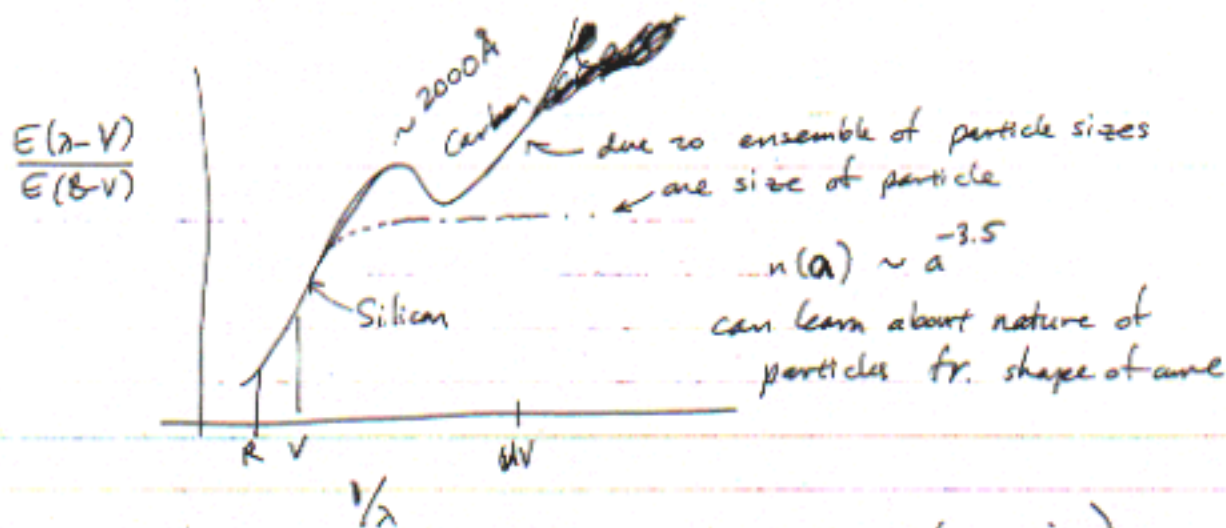 ~ 2000Å
Carbon
E(λ-V)
E(B-V)
due to ensemble of particle sizes
one size of particle
n(a) ~ a^-3.5
Silicon
can learn about nature of
particles fr. shape of curve
R V UV
1/λ